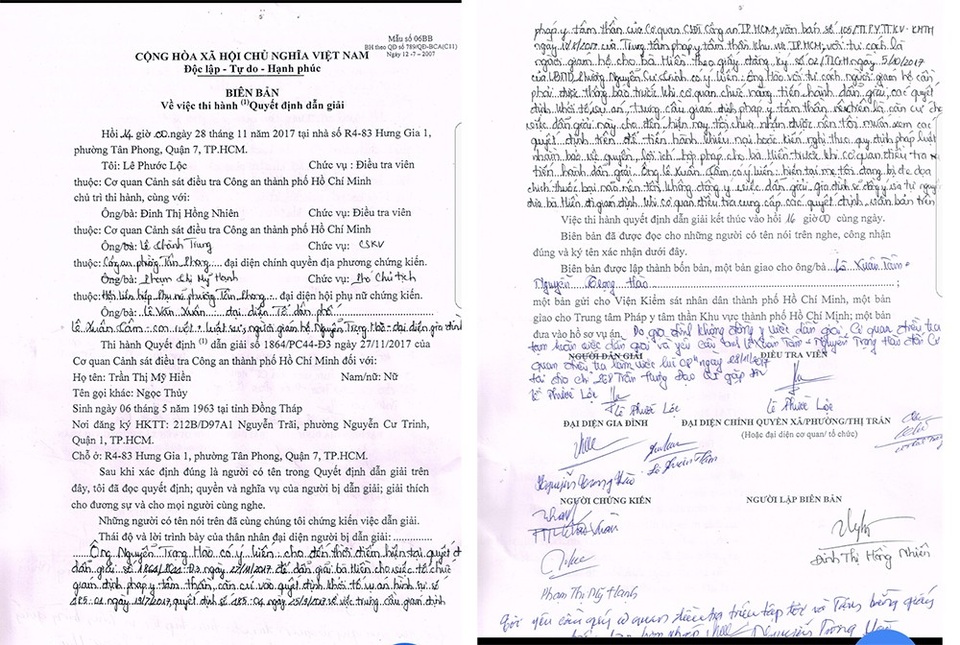 Mẫu số 06BB
BH theo QĐ số 789/QĐ-BCA(C11)
Ngày 12 - 7 - 2007
CỘNG HÒA XÃ HỘI CHỦ NGHĨA VIỆT NAM
Độc lập - Tự do - Hạnh phúc
BIÊN BẢN
Về việc thi hành (1)Quyết định dẫn giải
Hồi 14 giờ 00, ngày 28 tháng 11 năm 2017 tại nhà số R4-83 Hưng Gia 1,
phường Tân Phong, Quận 7, TP.HCM.
Tôi: Lê Phước Lộc Chức vụ : Điều tra viên
thuộc: Cơ quan Cảnh sát điều tra Công an thành phố Hồ Chí Minh
chủ trì thi hành, cùng với:
Ông/bà: Đinh Thị Hồng Nhiên Chức vụ: Điều tra viên
thuộc: Cơ quan Cảnh sát điều tra Công an thành phố Hồ Chí Minh
Ông/bà: Lê Thành Trung Chức vụ: CSKV
thuộc: Công an phường Tân Phong đại diện chính quyền địa phương chứng kiến.
Ông/bà: Phạm Thị Mỹ Hạnh Chức vụ: Phó Chủ tịch
thuộc: Hội liên hiệp Phụ nữ phường Tân Phong đại diện hội phụ nữ chứng kiến.
Ông/bà: Lê Văn Xuân, đại diện Tổ dân phố
Lê Xuân Tâm - con ruột - luật sư, người giám hộ Nguyễn Trọng Hào - đại diện gia đình
Thi hành Quyết định (1) dẫn giải số 1864/PC44-Đ3 ngày 27/11/2017 của
Cơ quan Cảnh sát điều tra Công an thành phố Hồ Chí Minh đối với:
Họ tên: Trần Thị Mỹ Hiền Nam/nữ: Nữ
Tên gọi khác: Ngọc Thủy
Sinh ngày 06 tháng 5 năm 1963 tại tỉnh Đồng Tháp
Nơi đăng ký HKTT: 212B/D97A1 Nguyễn Trãi, phường Nguyễn Cư Trinh,
Quận 1, TP.HCM.
Chỗ ở: R4-83 Hưng Gia 1, phường Tân Phong, Quận 7, TP.HCM.
Sau khi xác định đúng là người có tên trong Quyết định dẫn giải trên
đây, tôi đã đọc quyết định; quyền và nghĩa vụ của người bị dẫn giải; giải thích
cho đương sự và cho mọi người cùng nghe.
Những người có tên nói trên đã cùng chúng tôi chứng kiến việc dẫn giải.
Thái độ và lời trình bày của thân nhân đại diện người bị dẫn giải
Ông Nguyễn Trọng Hào có ý kiến: cho đến thời điểm hiện tại quyết
dẫn giải số 1864/PC44-Đ3 ngày 27/11/2017 để dẫn giải bà Hiền cho việc tổ chức
giám định pháp y tâm thần, căn cứ vào quyết định khởi tố vụ án hình sự số
485-01 ngày 19/7/2017, quyết định số 485-04 ngày 25/9/2017 về việc trưng cầu giám định
pháp y tâm thần của Cơ quan CSĐT Công an TP.HCM, văn bản số
ngày của Trung tâm pháp y tâm thần khu vực TP.HCM, với tư cách là
người giám hộ cho bà Hiền theo giấy đăng ký số 02/TLGH ngày 5/10/2017
của UBND phường Nguyễn Cư Trinh có ý kiến: ông Hào với tư cách người giám hộ cần
phải được thông báo trước khi cơ quan chức năng tiến hành dẫn giải, các quyết
định khởi tố vụ án, trưng cầu giám định pháp y tâm thần nêu trên là căn cứ cho
việc dẫn giải này cho đến hiện nay tôi chưa nhận được nên tôi muốn xem các
quyết định trên để tiến hành khiếu nại hoặc kiến nghị theo quy định pháp luật
nhằm bảo vệ quyền, lợi ích hợp pháp cho bà Hiền trước khi cơ quan điều tra
tiến hành dẫn giải. Ông Lê Xuân Tâm có ý kiến: hiện tại mẹ tôi đang bị đe dọa
chích thuốc bại não nên tôi không đồng ý việc dẫn giải. Gia đình sẽ đồng ý và tự nguyện
đưa bà Hiền đi giám định khi cơ quan điều tra cung cấp các quyết định, văn bản trên
Việc thi hành quyết định dẫn giải kết thúc vào hồi 16 giờ 00 cùng ngày.
Biên bản đã được đọc cho những người có tên nói trên nghe, công nhận
đúng và ký tên xác nhận dưới đây.
Biên bản được lập thành bốn bản, một bản giao cho ông/bà Lê Xuân Tâm +
Nguyễn Trọng Hào
một bản gửi cho Viện Kiểm sát nhân dân thành phố Hồ Chí Minh, một bản
giao cho Trung tâm Pháp y tâm thần khu vực thành phố Hồ Chí Minh; một bản
đưa vào hồ sơ vụ án. Do gia đình không đồng ý việc dẫn giải, Cơ quan điều tra
tạm hoãn việc dẫn giải và yêu cầu anh Lê Xuân Tâm + Nguyễn Trọng Hào đến Cơ
NGƯỜI DẪN GIẢI ĐIỀU TRA VIÊN
quan điều tra làm việc lúc ngày 28/11/2017
tại địa chỉ Trần Hưng Đạo Q1 gặp ĐTV
Lê Phước Lộc
Lê Phước Lộc Lê Phước Lộc
ĐẠI DIỆN GIA ĐÌNH ĐẠI DIỆN CHÍNH QUYỀN XÃ/PHƯỜNG/THỊ TRẤN
(Hoặc đại diện cơ quan/ tổ chức)
Lê Xuân Tâm
Nguyễn Trọng Hào
NGƯỜI CHỨNG KIẾN NGƯỜI LẬP BIÊN BẢN
Lê Văn Xuân
Đinh Thị Hồng Nhiên
Phạm Thị Mỹ Hạnh
yêu cầu quý cơ quan điều tra triệu tập tôi và Tâm bằng giấy
Nguyễn Trọng Hào